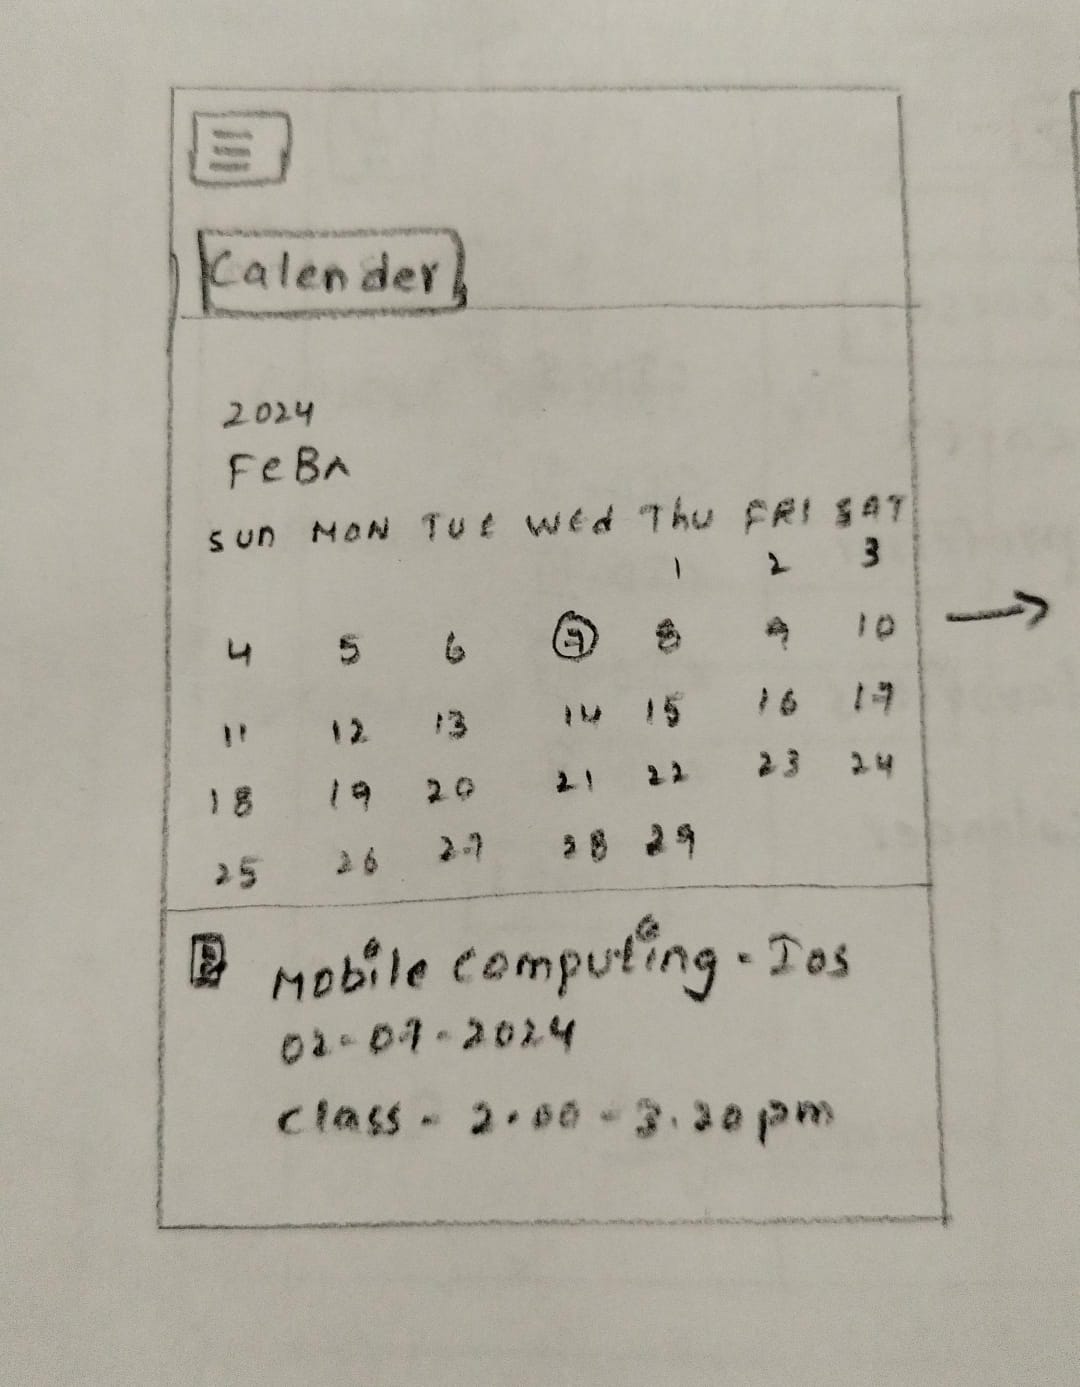 Calender
2024
FeBʌ
SUN MON TUE WEd Thu FRI SAT
1 2 3
4 5 6 7 8 9 10
11 12 13 14 15 16 17
18 19 20 21 22 23 24
25 26 27 28 29
Mobile computing - Ios
02-07-2024
class - 2.00 - 3.20 pm